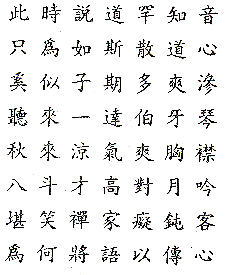 此時說道罕知音
只爲如斯散道心
奚似子期多爽滲
聽來一達伯牙琴
秋來涼氣爽胸襟
八斗才高對月吟
堪笑禪家癡鈍客
爲何將語以傳心